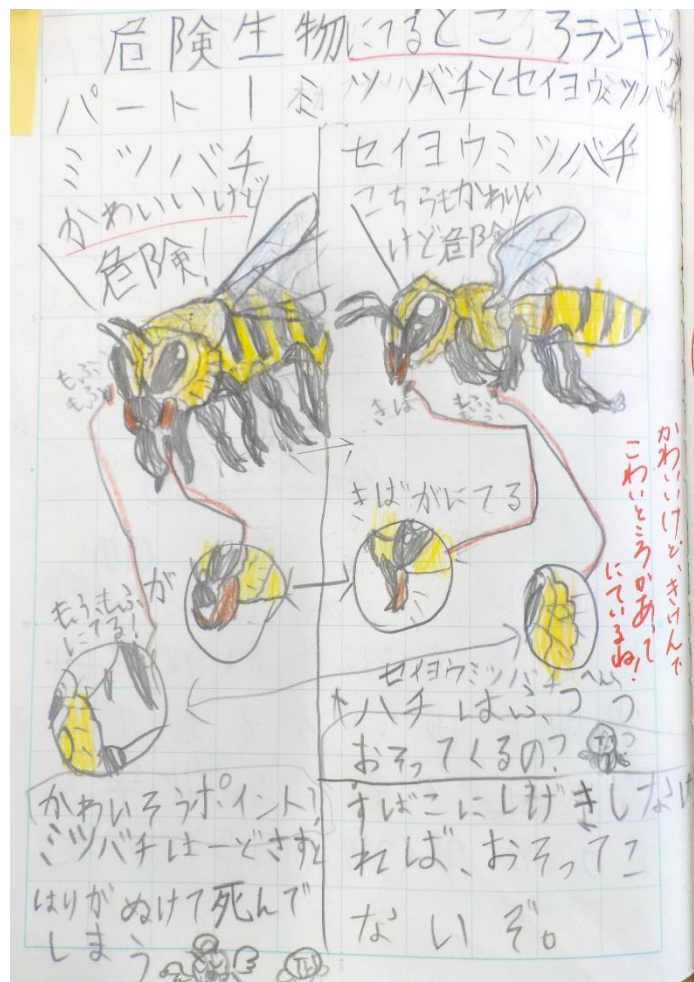 危険生物にてるところランキング
パート1 ミツバチとセイヨウミツバチ
ミツバチ
かわいいけど
危険!
もふ
もふ
もふもふが
にてる!
かわいそうポイント!
ミツバチは一どさすと
はりがぬけて死んで
しまう
セイヨウミツバチ
こちらもかわいい
けど危険
きば
もふ
きばがにてる
セイヨウミツバチ
ハチはふつう
おそってくるの?
すばこにしげきしなけ
れば、おそってこ
ないぞ。
かわいけど、きけんで
こわいところがあって
にているね!